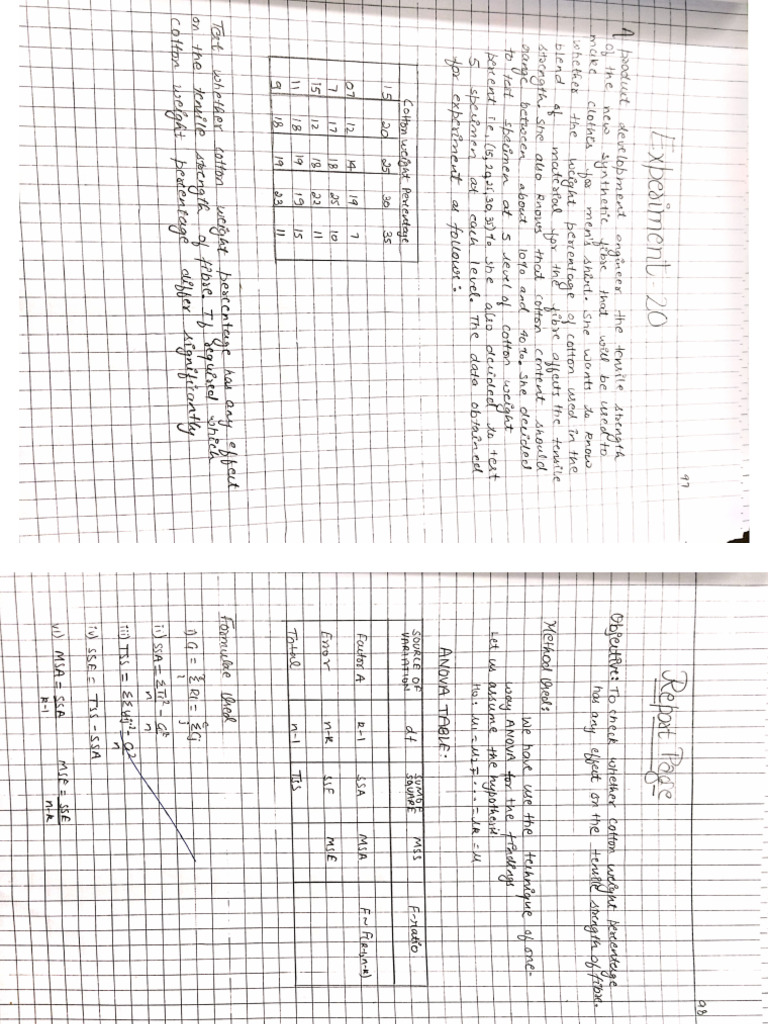 97
Experiment-20
A product development engineer the tensile strength
of the new synthetic fibre that will be used to
make clothes for men's shirt. She wants to know
whether the weight percentage of cotton used in the
blend of material for the fibre affects the tensile
strength. She also knows that cotton content should
range between about 10% and 40%. She decided
to test specimen at 5 level of cotton weight
percent i.e, (15,20,25,30,35)%. She also decided to test
5 specimen at each level. The data obtained
for experiment as follows:
Cotton weight percentage
15 20 25 30 35
07 12 14 19 7
7 17 18 25 10
15 12 18 22 11
11 18 19 19 15
9 18 19 23 11
Test whether cotton weight percentage has any effect
on the tensile strength of fibre. If required which
cotton weight percentage differ significantly
98
Report Page
Objective: To check whether cotton weight percentage
has any effect on the tensile strength of fibre.
Method Used:
We have use the technique of one-
way ANOVA for the findings
Let us assume the hypothesis
H0: μ1 = μ2 = ... = μk = μ
ANOVA TABLE:
SOURCE OF VARIATION df SUM OF SQUARE MSS F-ratio
Factor A k-1 SSA MSA F~F(k-1,n-k)
Error n-k SSE MSE
Total n-1 TSS
Formulae Used
i) G = ΣRi = ΣCj
ii) SSA = ΣTi²/n - G²/n
iii) TSS = ΣΣyij² - G²/n
iv) SSE = TSS - SSA
vi) MSA = SSA/k-1 MSE = SSE/n-k